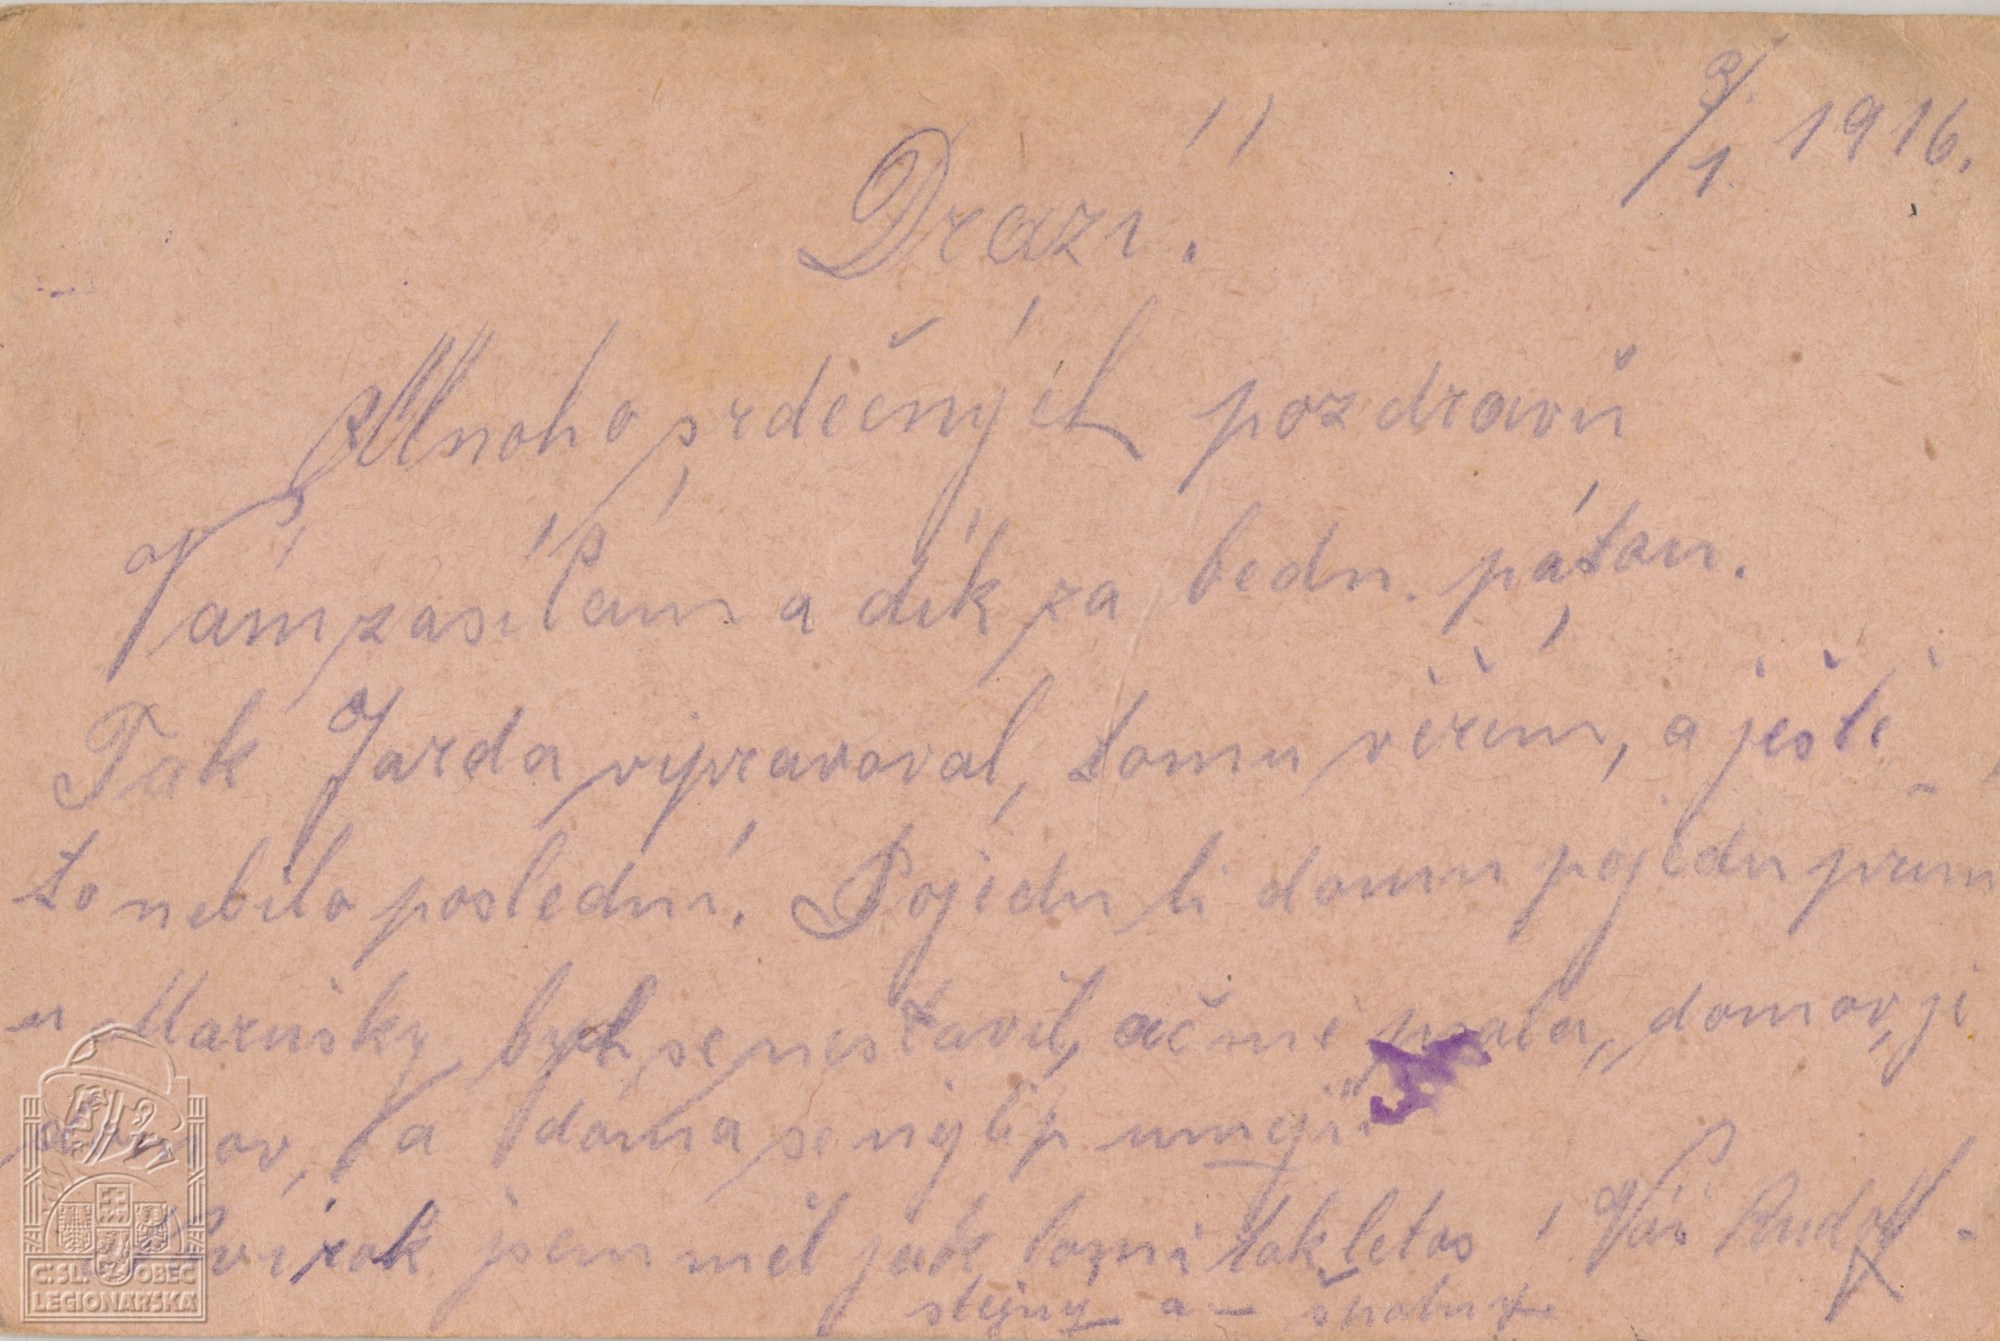 8/1. 1916.
Drazí!
Mnoho srdečných pozdravů
Vám zasílám a dík za bedn. pátou.
Tak Jarda vipravoval, tomu věřím, a ještě
to nebilo poslední. Pojedu li domu pojedu přím
u Marušky bych se nestavil, ač mě psala, domov, ji
domov, a doma se nejlíp umejí
jsem měl jak loni tak letos ! Váš Rudolf.
stejný a – špatný
C:SL. OBEC
LEGIONÁŘSKÁ